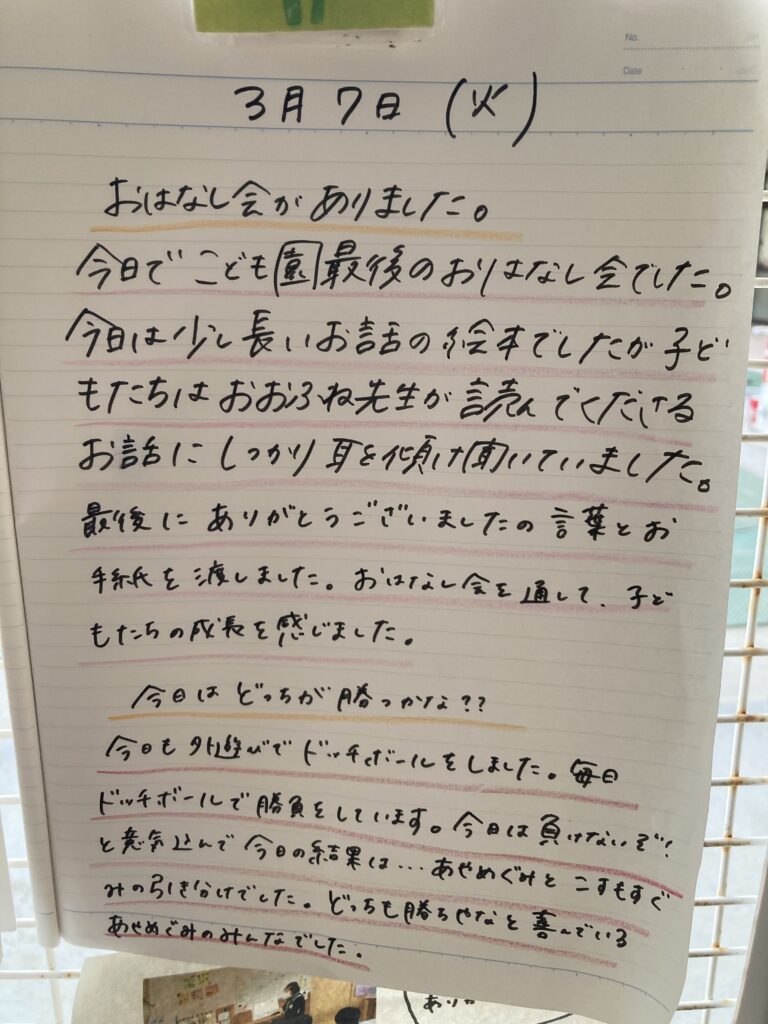 No.
Date
3月7日(火)
おはなし会がありました。
今日でこども園最後のおはなし会でした。
今日は少し長いお話の絵本でしたが子ど
もたちはおおふね先生が読んでくださる
お話にしっかり耳を傾け聞いていました。
最後にありがとうございましたの言葉とお
手紙を渡しました。おはなし会を通して、子ど
もたちの成長を感じました。
今日はどっちが勝つかな??
今日も外遊びでドッチボールをしました。毎日
ドッチボールで勝負をしています。今日は負けないぞ!
と意気込んで今日の結果は…あやめぐみとこすもすぐ
みの引き分けでした。どっちも勝ちやなと喜んでいる
あやめぐみのみんなでした。
ありが